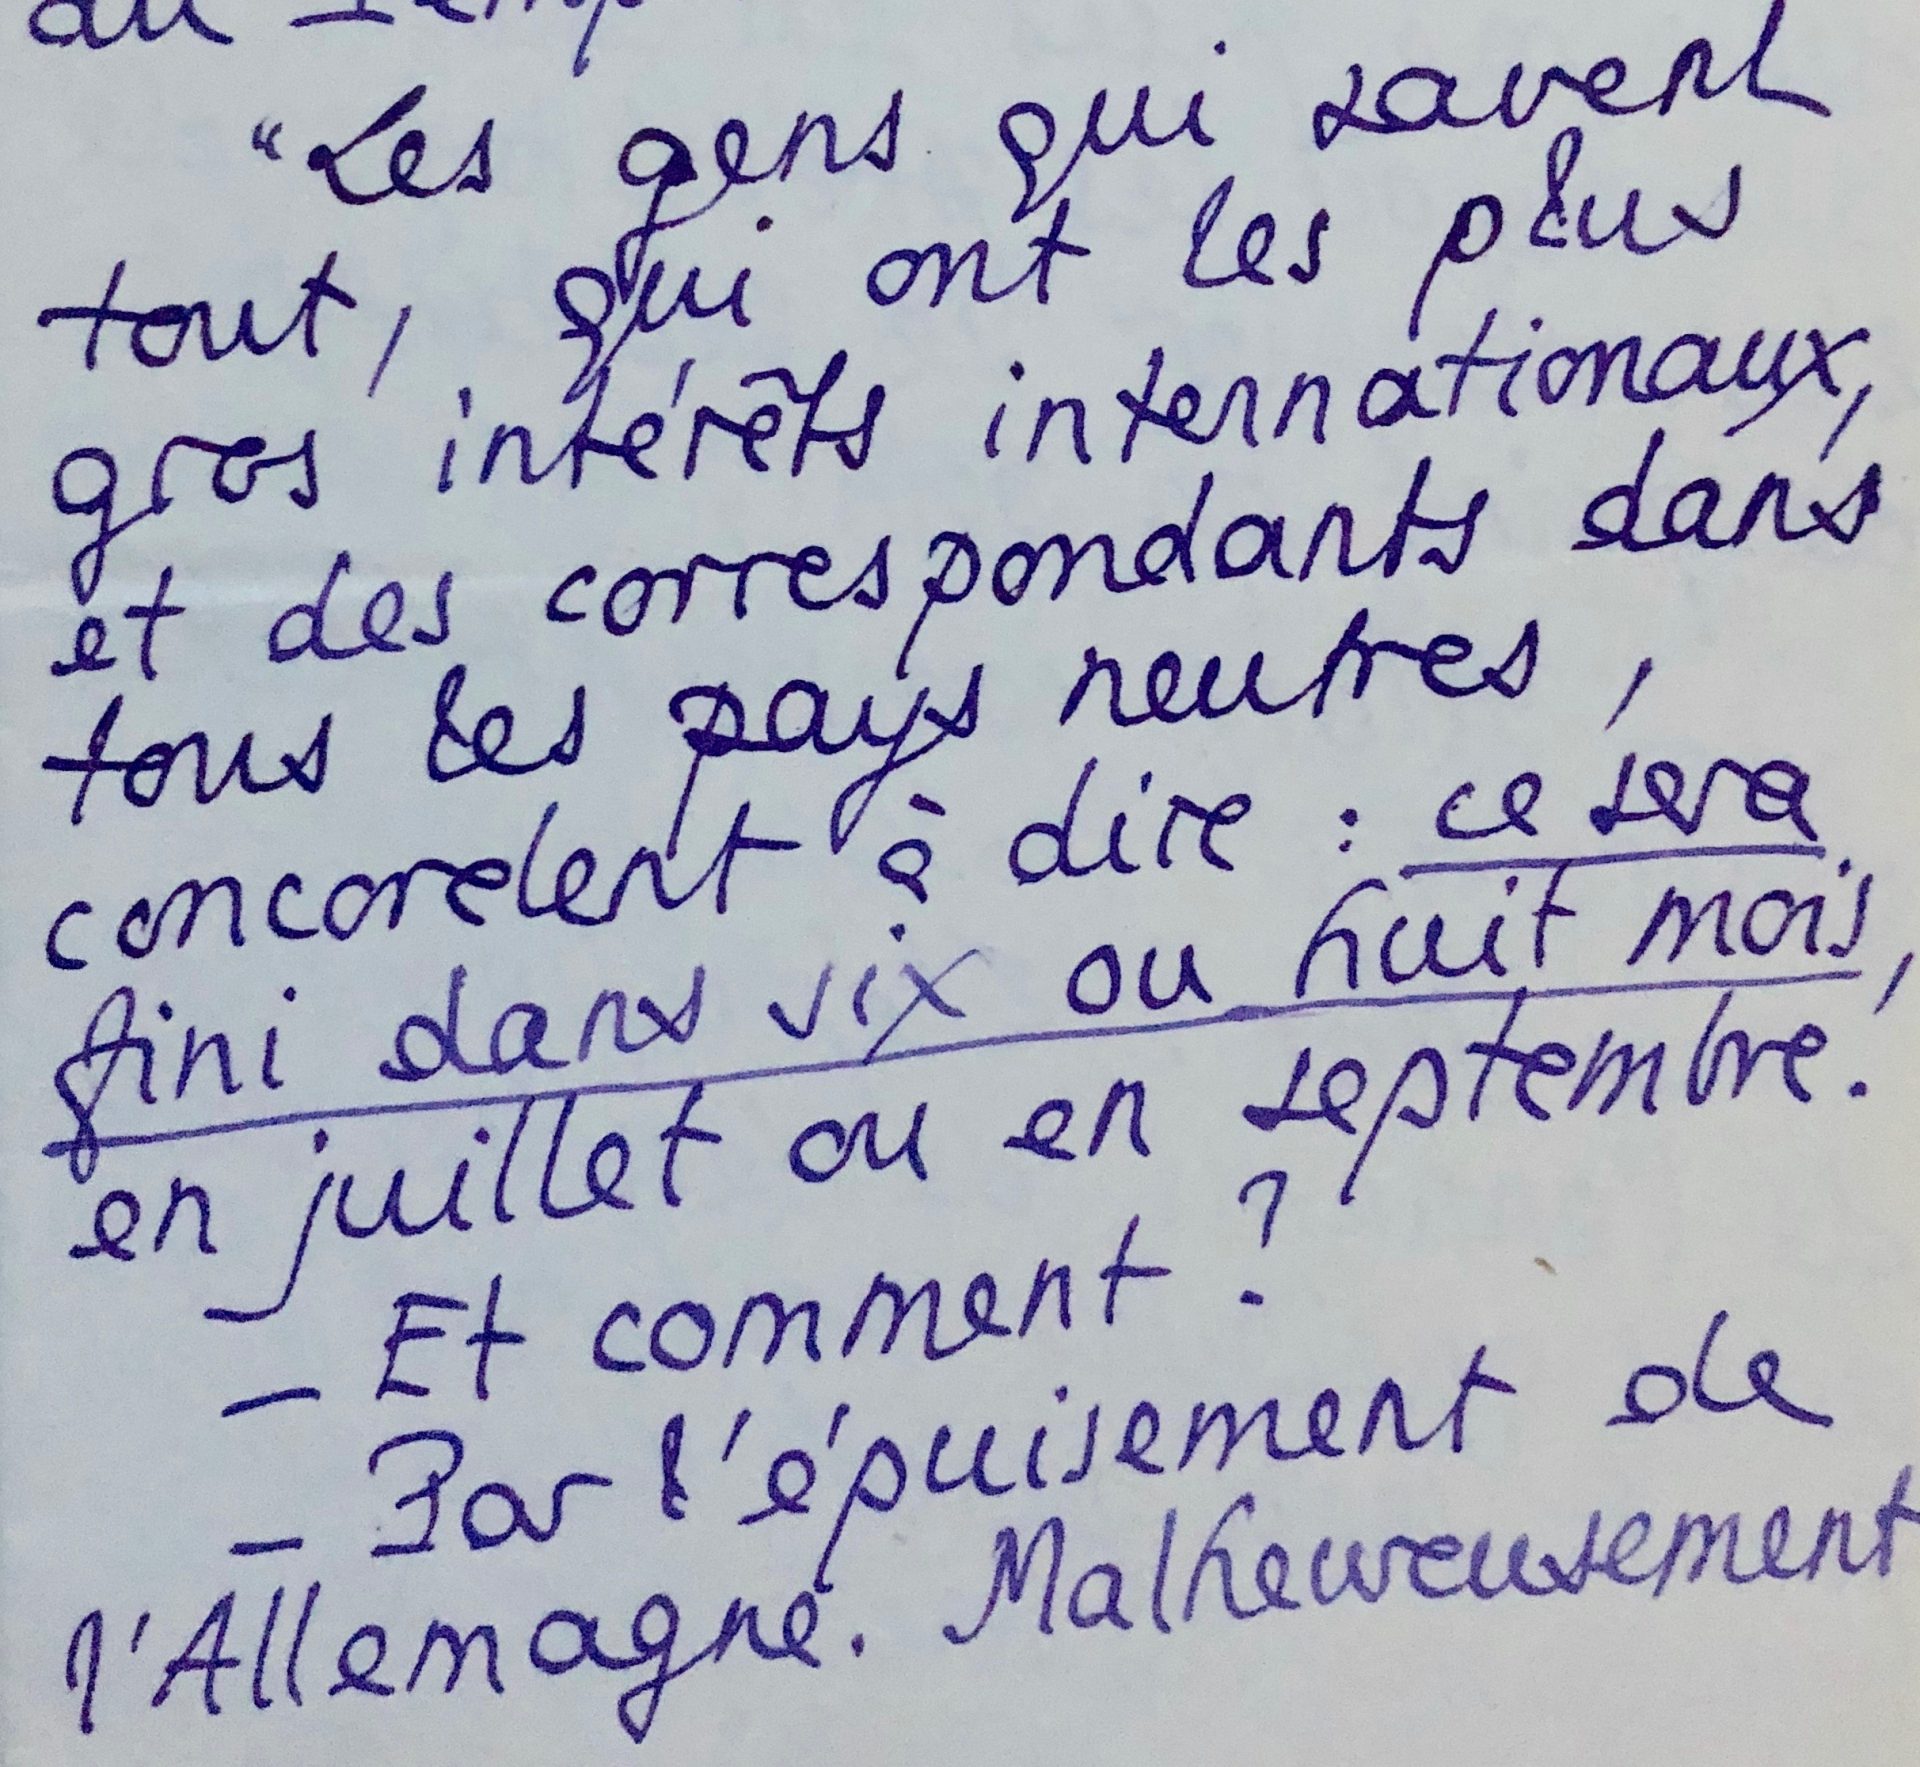 au Temp
"Les gens qui savent
tout, qui ont les plus
gros intérêts internationaux,
et des correspondants dans
tous les pays neutres,
concordent à dire : ce sera
fini dans six ou huit mois,
en juillet ou en septembre.
— Et comment ?
— Par l'épuisement de
l'Allemagne. Malheureusement